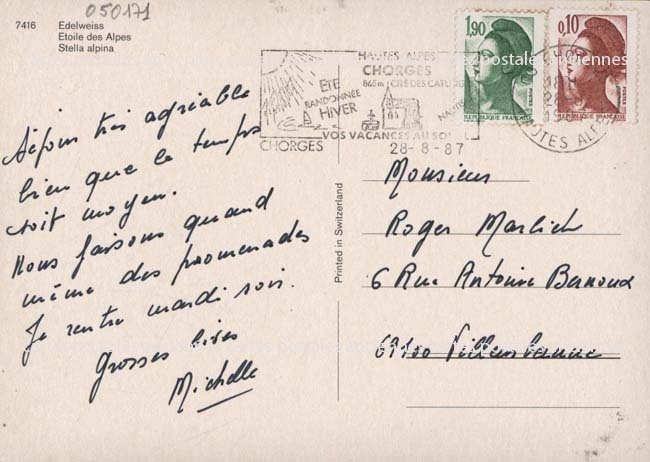 050171
7416 Edelweiss
Etoile des Alpes
Stella alpina
1,90
0,10
POSTES
POSTES
REPUBLIQUE FRANCAISE
REPUBLIQUE FRANCAISE
HAUTES ALPES
CHORGES
865m CITÉ DES CATURIGES
ÉTÉ
RANDONNÉE
HIVER
NAUTI
VOS VACANCES AU SOL
CHORGES
28-8-87
HAUTES ALPES
Séjour très agréable
bien que le temps
soit moyen.
Nous faisons quand
même des promenades
Je rentre mardi soir.
Grosses bises
Michelle
Printed in Switzerland
Monsieur
Roger Marlich
6 Rue Antoine Bernoux
69100 Villeurbanne